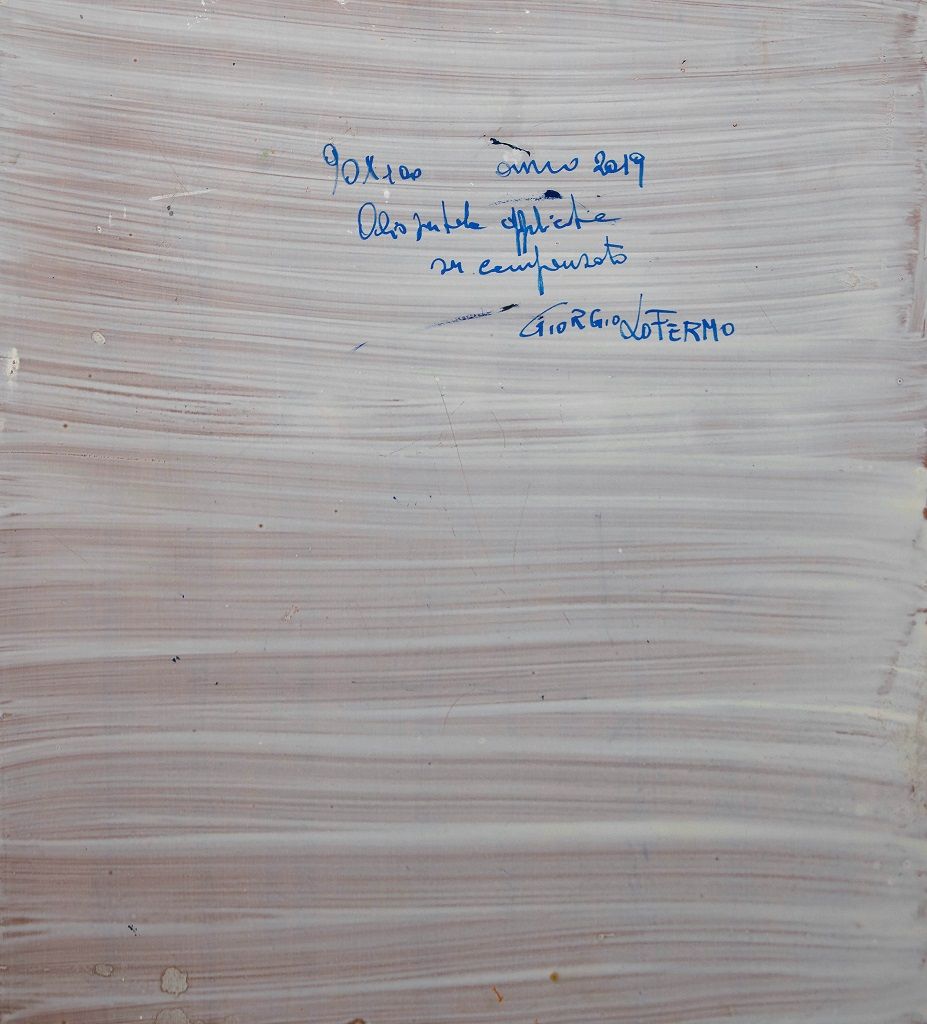 90X100 anno 2019
Olio su tela applicata
su compensato
GIORGIO LO FERMO